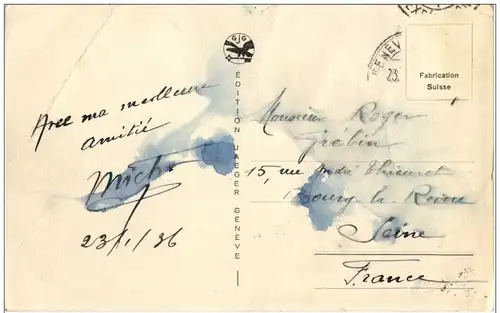 Avec ma meilleure
amitié
Mich
23/1/36
GJG
ÉDITION JAEGER GENÈVE
GENÈVE
23
Fabrication
Suisse
Monsieur Roger
Grébin
15, rue André Theuriet
Bourg-la-Reine
Seine
France